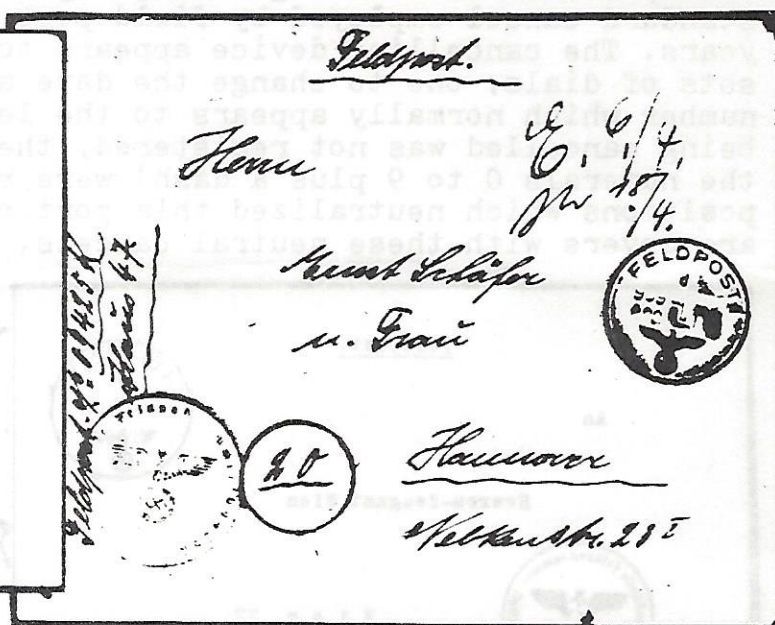 years. The cancelling device appears
sets of dials, one to change the date
number which normally appears to the
being cancelled was not registered, the
the numerals 0 to 9 plus a dash) were
positions which neutralized this
covers with these neutral
Feldpost.
Herrn
6/7.
18/4.
Ernst Schäfer
u. Frau
FELDPOST
d
Feldpost
20
Hannover
Nelkenstr. 28 I
An
Heeres-Zeugamt Wien